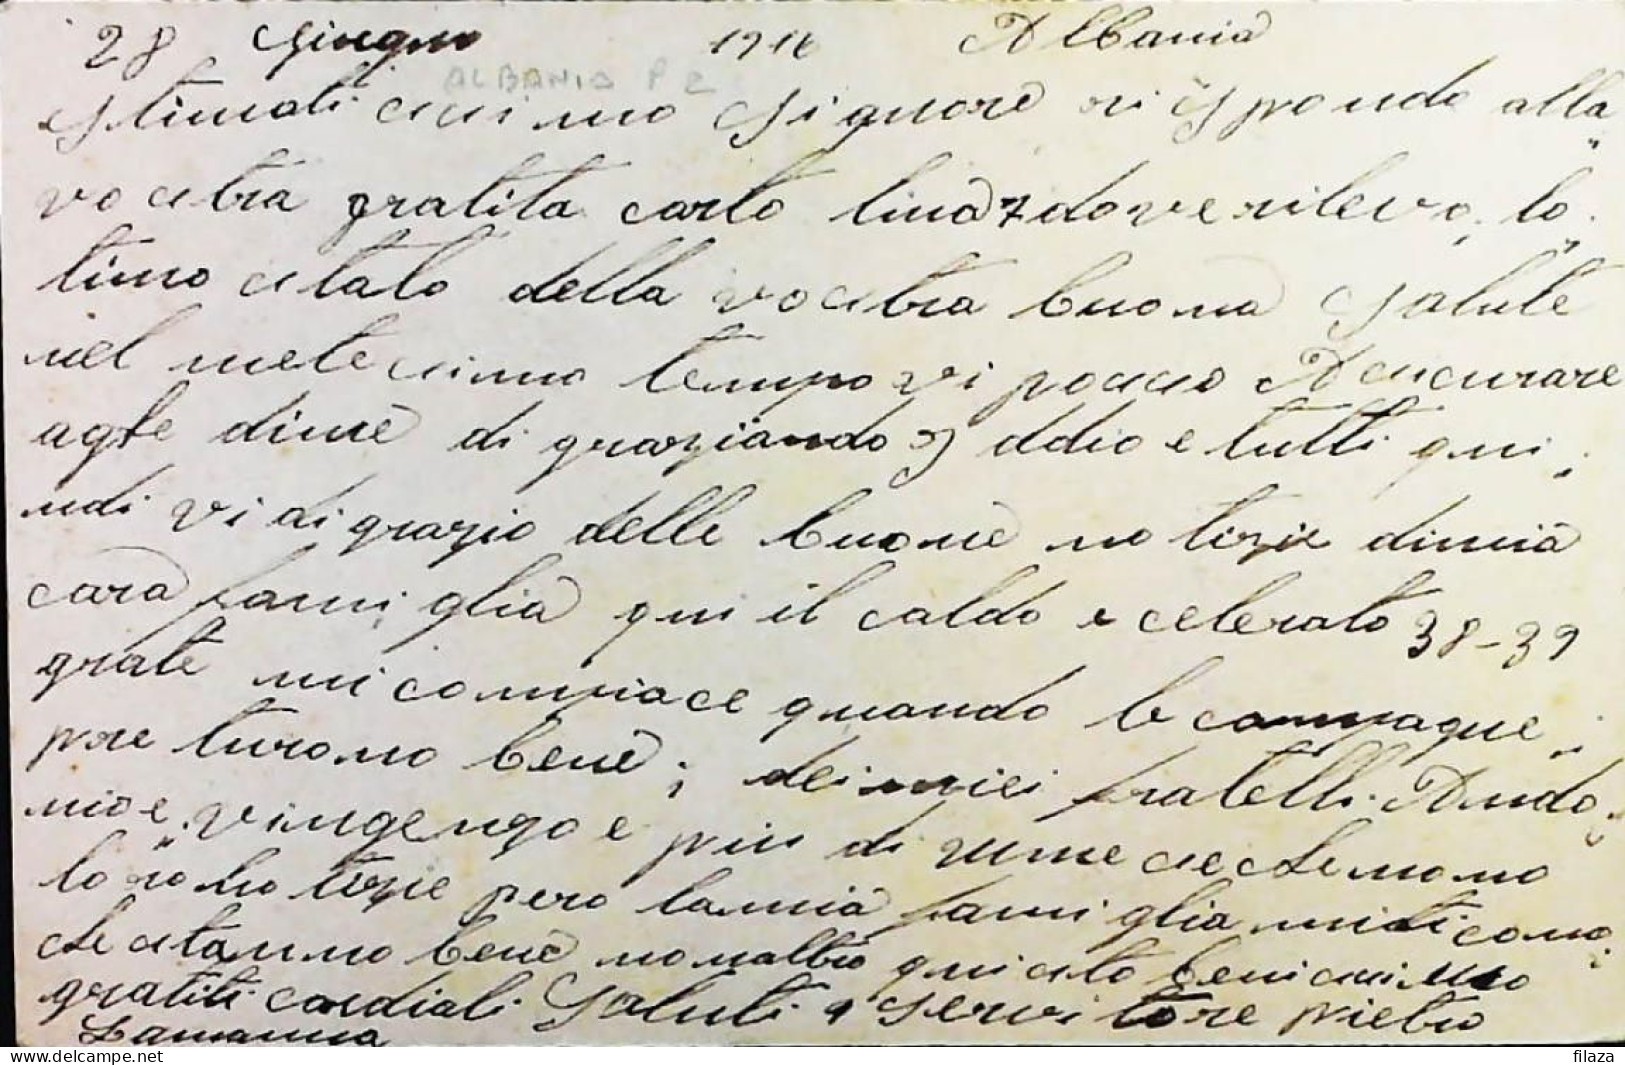 28 Giugno 1916 Albania
ALBANIA P 2
Stimatissimo Signore rispondo alla
vostra gratita carto linà dove rilevo, lo
timo stato della vostra buona Salute
nel metesimo tempo vi posso Assicurare
di graziando ddio e tutti qui
ndi vi di grazio delle buone notizie dimia
cara famiglia qui il caldo e celerato 38-39
grate mi compiace quando le campagne,
pre turono bene; dei miei fratelli. Ando
nio e, vingenzo e piu di
lo notizie pero lamia famiglia midicono
che stanno bene nonaltro quisto benissimo
gratiti cordiali Saluti e Servitore pietro
Lamanna
filaza